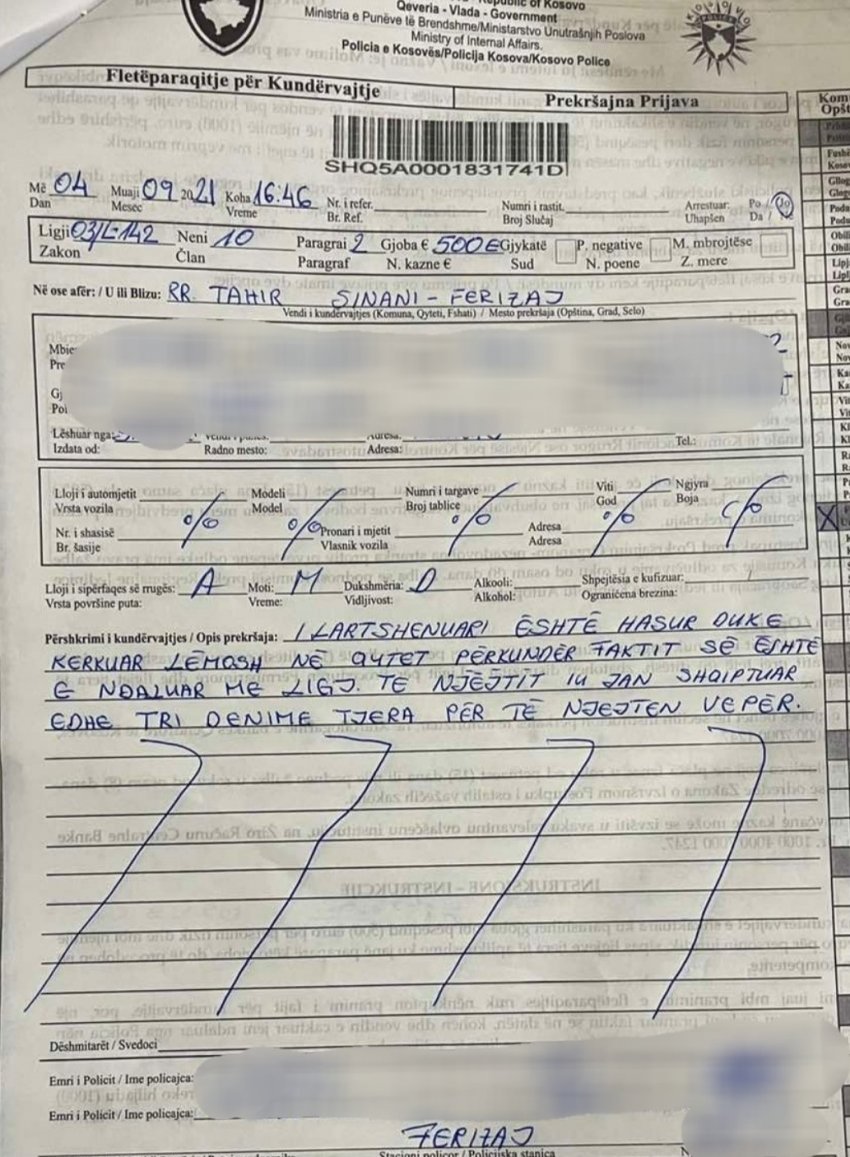 Republic of Kosovo
Qeveria - Vlada - Government
Ministria e Punëve të Brendshme/Ministarstvo Unutrašnjih Poslova
Ministry of Internal Affairs.
Policia e Kosovës/Policija Kosova/Kosovo Police
Fletëparaqitje për Kundërvajtje Prekršajna Prijava
SHQ5A0001831741D
Më 04 Muaji 09 2021 Koha 16:46 Nr. i refer. Numri i rastit. Arrestuar: Po / Jo
Dan Mesec Vreme Br. Ref. Broj Slučaj Uhapšen Da /
Ligji 03/L-142 Neni 10 Paragrai 2 Gjoba € 500 € Gjykatë P. negative M. mbrojtëse
Zakon Član Paragraf N. kazne € Sud N. poene Z. mere
Në ose afër: / U ili Blizu: RR. TAHIR SINANI - FERIZAJ
Vendi i kundërvajtjes (Komuna, Qyteti, Fshati) / Mesto prekršaja (Opština, Grad, Selo)
Mbie
Pre
Gj
Lëshuar nga:
Izdata od: Radno mesto: Adresa: Tel.:
Lloji i automjetit Modeli Numri i targave Viti Ngjyra
Vrsta vozila Model Broj tablice God Boja
%  %  %  %  %
Nr. i shasisë Pronari i mjetit Adresa
Br. šasije Vlasnik vozila Adresa
Lloji i sipërfaqes së rrugës: A Moti: M Dukshmëria: D Alkooli: Shpejtësia e kufizuar:
Vrsta površine puta: Vreme: Vidljivost: Alkohol: Ograničena brezina:
Përshkrimi i kundërvajtjes / Opis prekršaja: I LARTSHENUARI ËSHTË HASUR DUKE
KERKUAR LËMOSH NË QYTET PËRKUNDËR FAKTIT SË ËSHTË
E NDALUAR ME LIGJ. TË NJËJTIT IU JAN SHQIPTUAR
EDHE TRI DENIME TJERA PËR TË NJEJTEN VEPËR.
Dëshmitarët / Svedoci
Emri i Policit / Ime policajca:
Emri i Policit / Ime policajca:
FERIZAJ
Stacioni policor / Policijska stanica